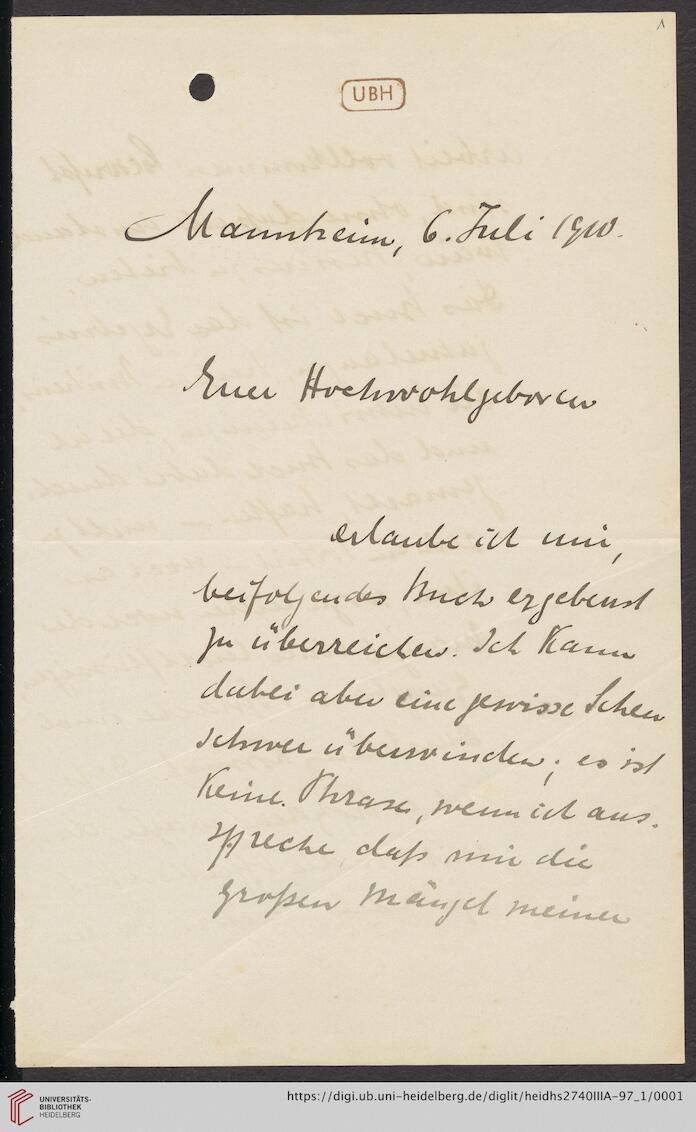 1
UBH
Mannheim, 6. Juli 1910.
Euer Hochwohlgeboren
erlaube ich mir,
beifolgendes Buch ergebenst
zu überreichen. Ich kann
dabei aber eine gewisse Scheu
schwer überwinden; es ist
keine Phrase, wenn ich aus-
spreche daß mir die
großen Mängel meiner
UNIVERSITÄTS-
BIBLIOTHEK
HEIDELBERG
https://digi.ub.uni-heidelberg.de/diglit/heidhs2740IIIA-97_1/0001